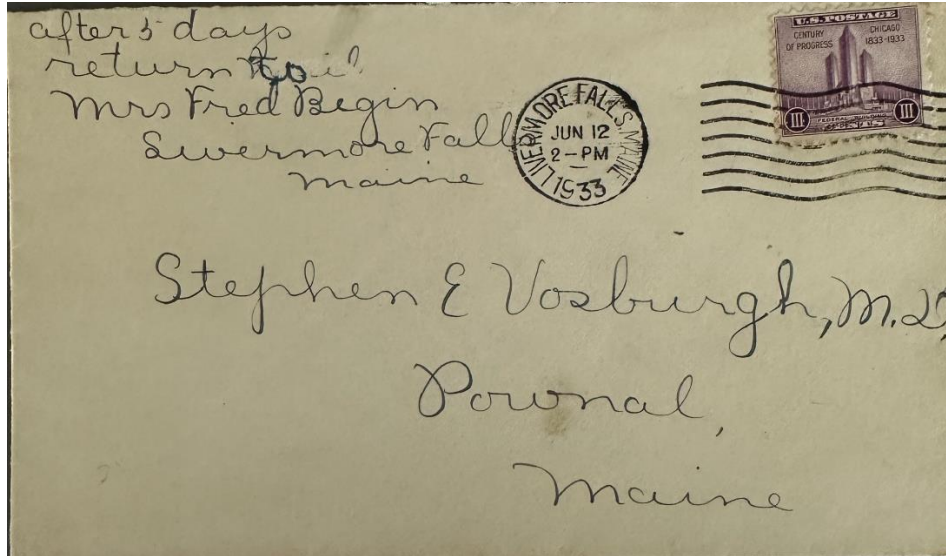 after 5 days
return to
Mrs Fred Begin
Livermore Falls
Maine
LIVERMORE FALLS, MAINE
JUN 12
2-PM
1933
U.S. POSTAGE
CENTURY OF PROGRESS
CHICAGO 1833-1933
III III
FEDERAL BUILDING
CENTS
Stephen E Vosburgh, M.D,
Pownal,
Maine